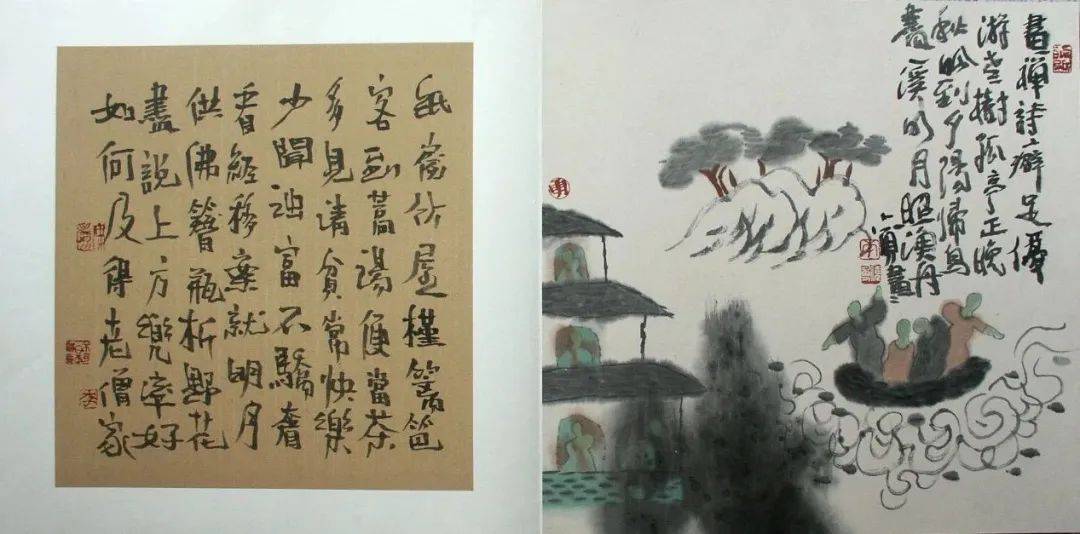 紙窗竹屋槿籬笆
客到蒿湯便當茶
多見清貧常快樂
少聞濁富不驕奢
看經移案就明月
供佛簪瓶折野花
盡說上方兜率好
如何及得老僧家
畫禪詩癖足優
游老樹孤亭正晚
秋吟到夕陽歸鳥
盡一溪明月照漁舟
畫